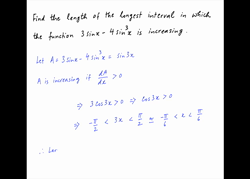 Find the length of the longest interval in which
the function 3 sinx - 4 sin³x is increasing.
Let A = 3 sinx - 4 sin³x = sin3x
A is increasing if dA/dx > 0
⇒ 3 cos3x > 0 ⇒ cos3x > 0
⇒ -π/2 < 3x < π/2 ≡ -π/6 < x < π/6
∴ Ler